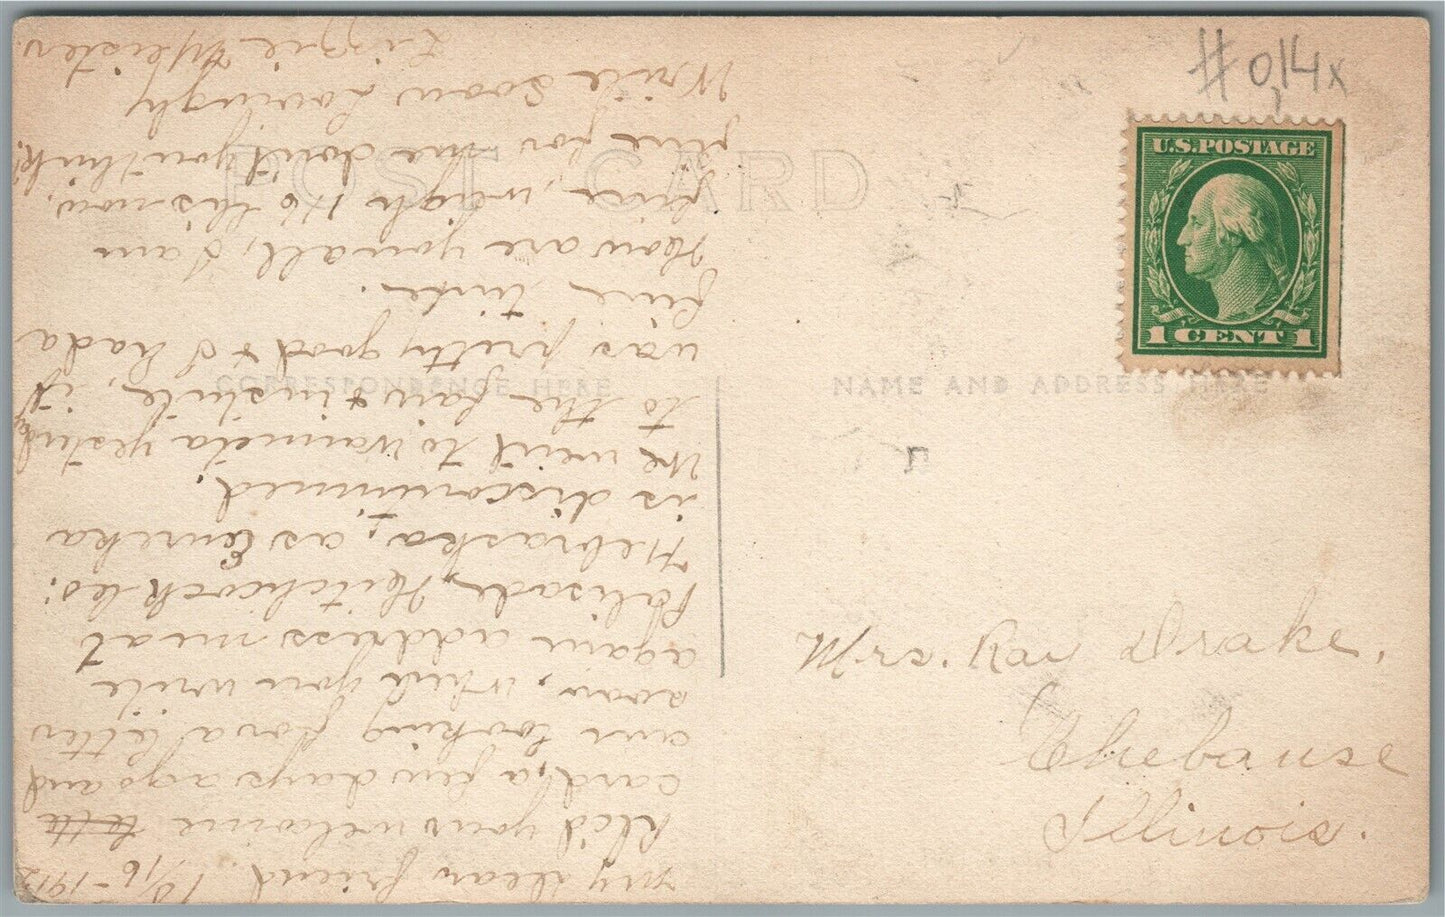 # 0,14x
U.S. POSTAGE
1 CENT 1
POST CARD
CORRESPONDENCE HERE
NAME AND ADDRESS HERE
Mrs. Ray Drake.
Chebanse
Illinois.
My dear friend. 10/16-1912
Rec'd your welcome
card, a few days ago and
am looking for a letter
soon, when you write
again address me at
Palisade, Hitchcock Co.
Nebraska, as Eureka
is discontinued.
We went to Wauneta
to the fair & institute, it
was pretty good & I had a
fine time.
How are you all, I am
fine, weigh 116 this now,
fine for me don't you think.
Write Soon Lovingly
Lizzie